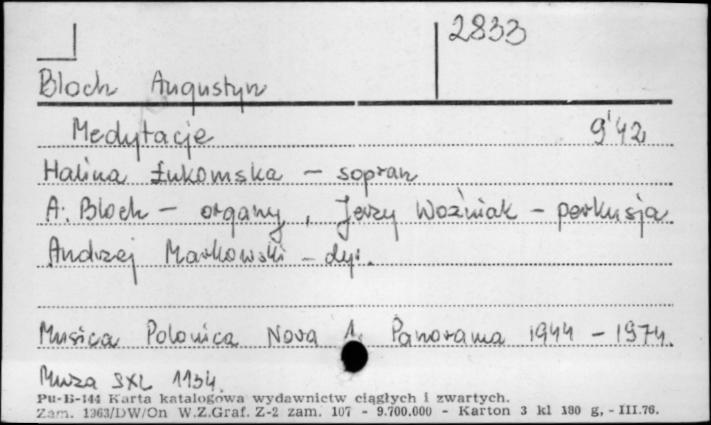 2833
Bloch Augustyn
Medytacje 9'42
Halina Łukomska – sopran
A. Bloch – organy, Jerzy Woźniak – perkusja
Andrzej Markowski – dyr.
Musica Polonica Nova 1. Panorama 1944 – 1974.
Muza SXL 1134.
Pu-B-144 Karta katalogowa wydawnictw ciągłych i zwartych.
Zam. 1363/DW/On W.Z.Graf. Z-2 zam. 107 - 9.700.000 - Karton 3 kl 180 g, - III.76.